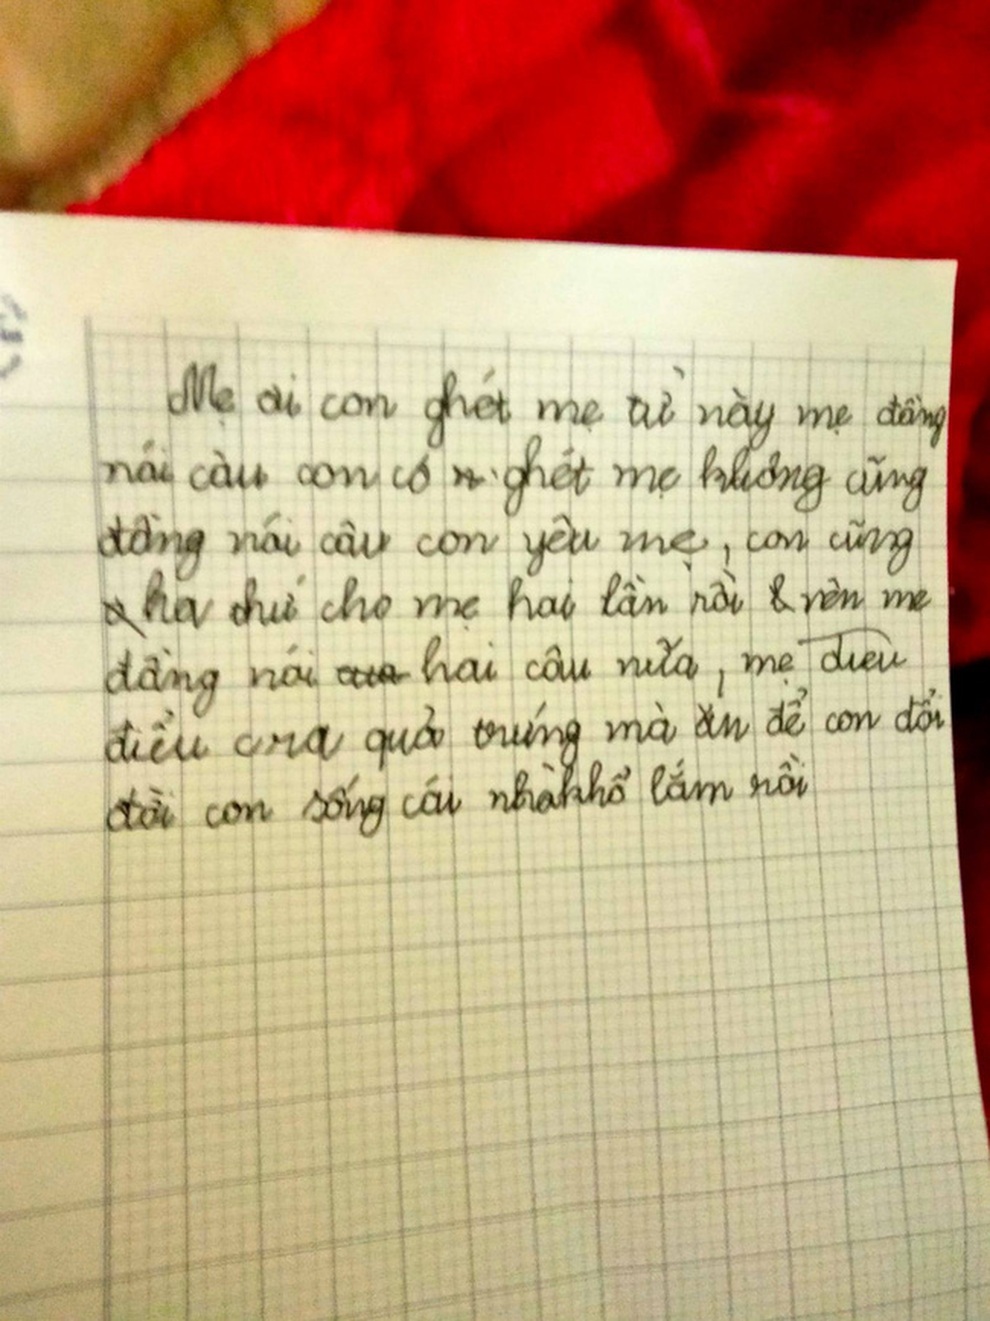 Mẹ ơi con ghét mẹ từ này mẹ đừng
nói câu con có ghét mẹ không cũng
đừng nói câu con yêu mẹ, con cũng
tha thứ cho mẹ hai lần rồi nên mẹ
đừng nói hai câu nữa, mẹ
quả trứng mà ăn để con đổi
đời con sống cái nhà khổ lắm rồi